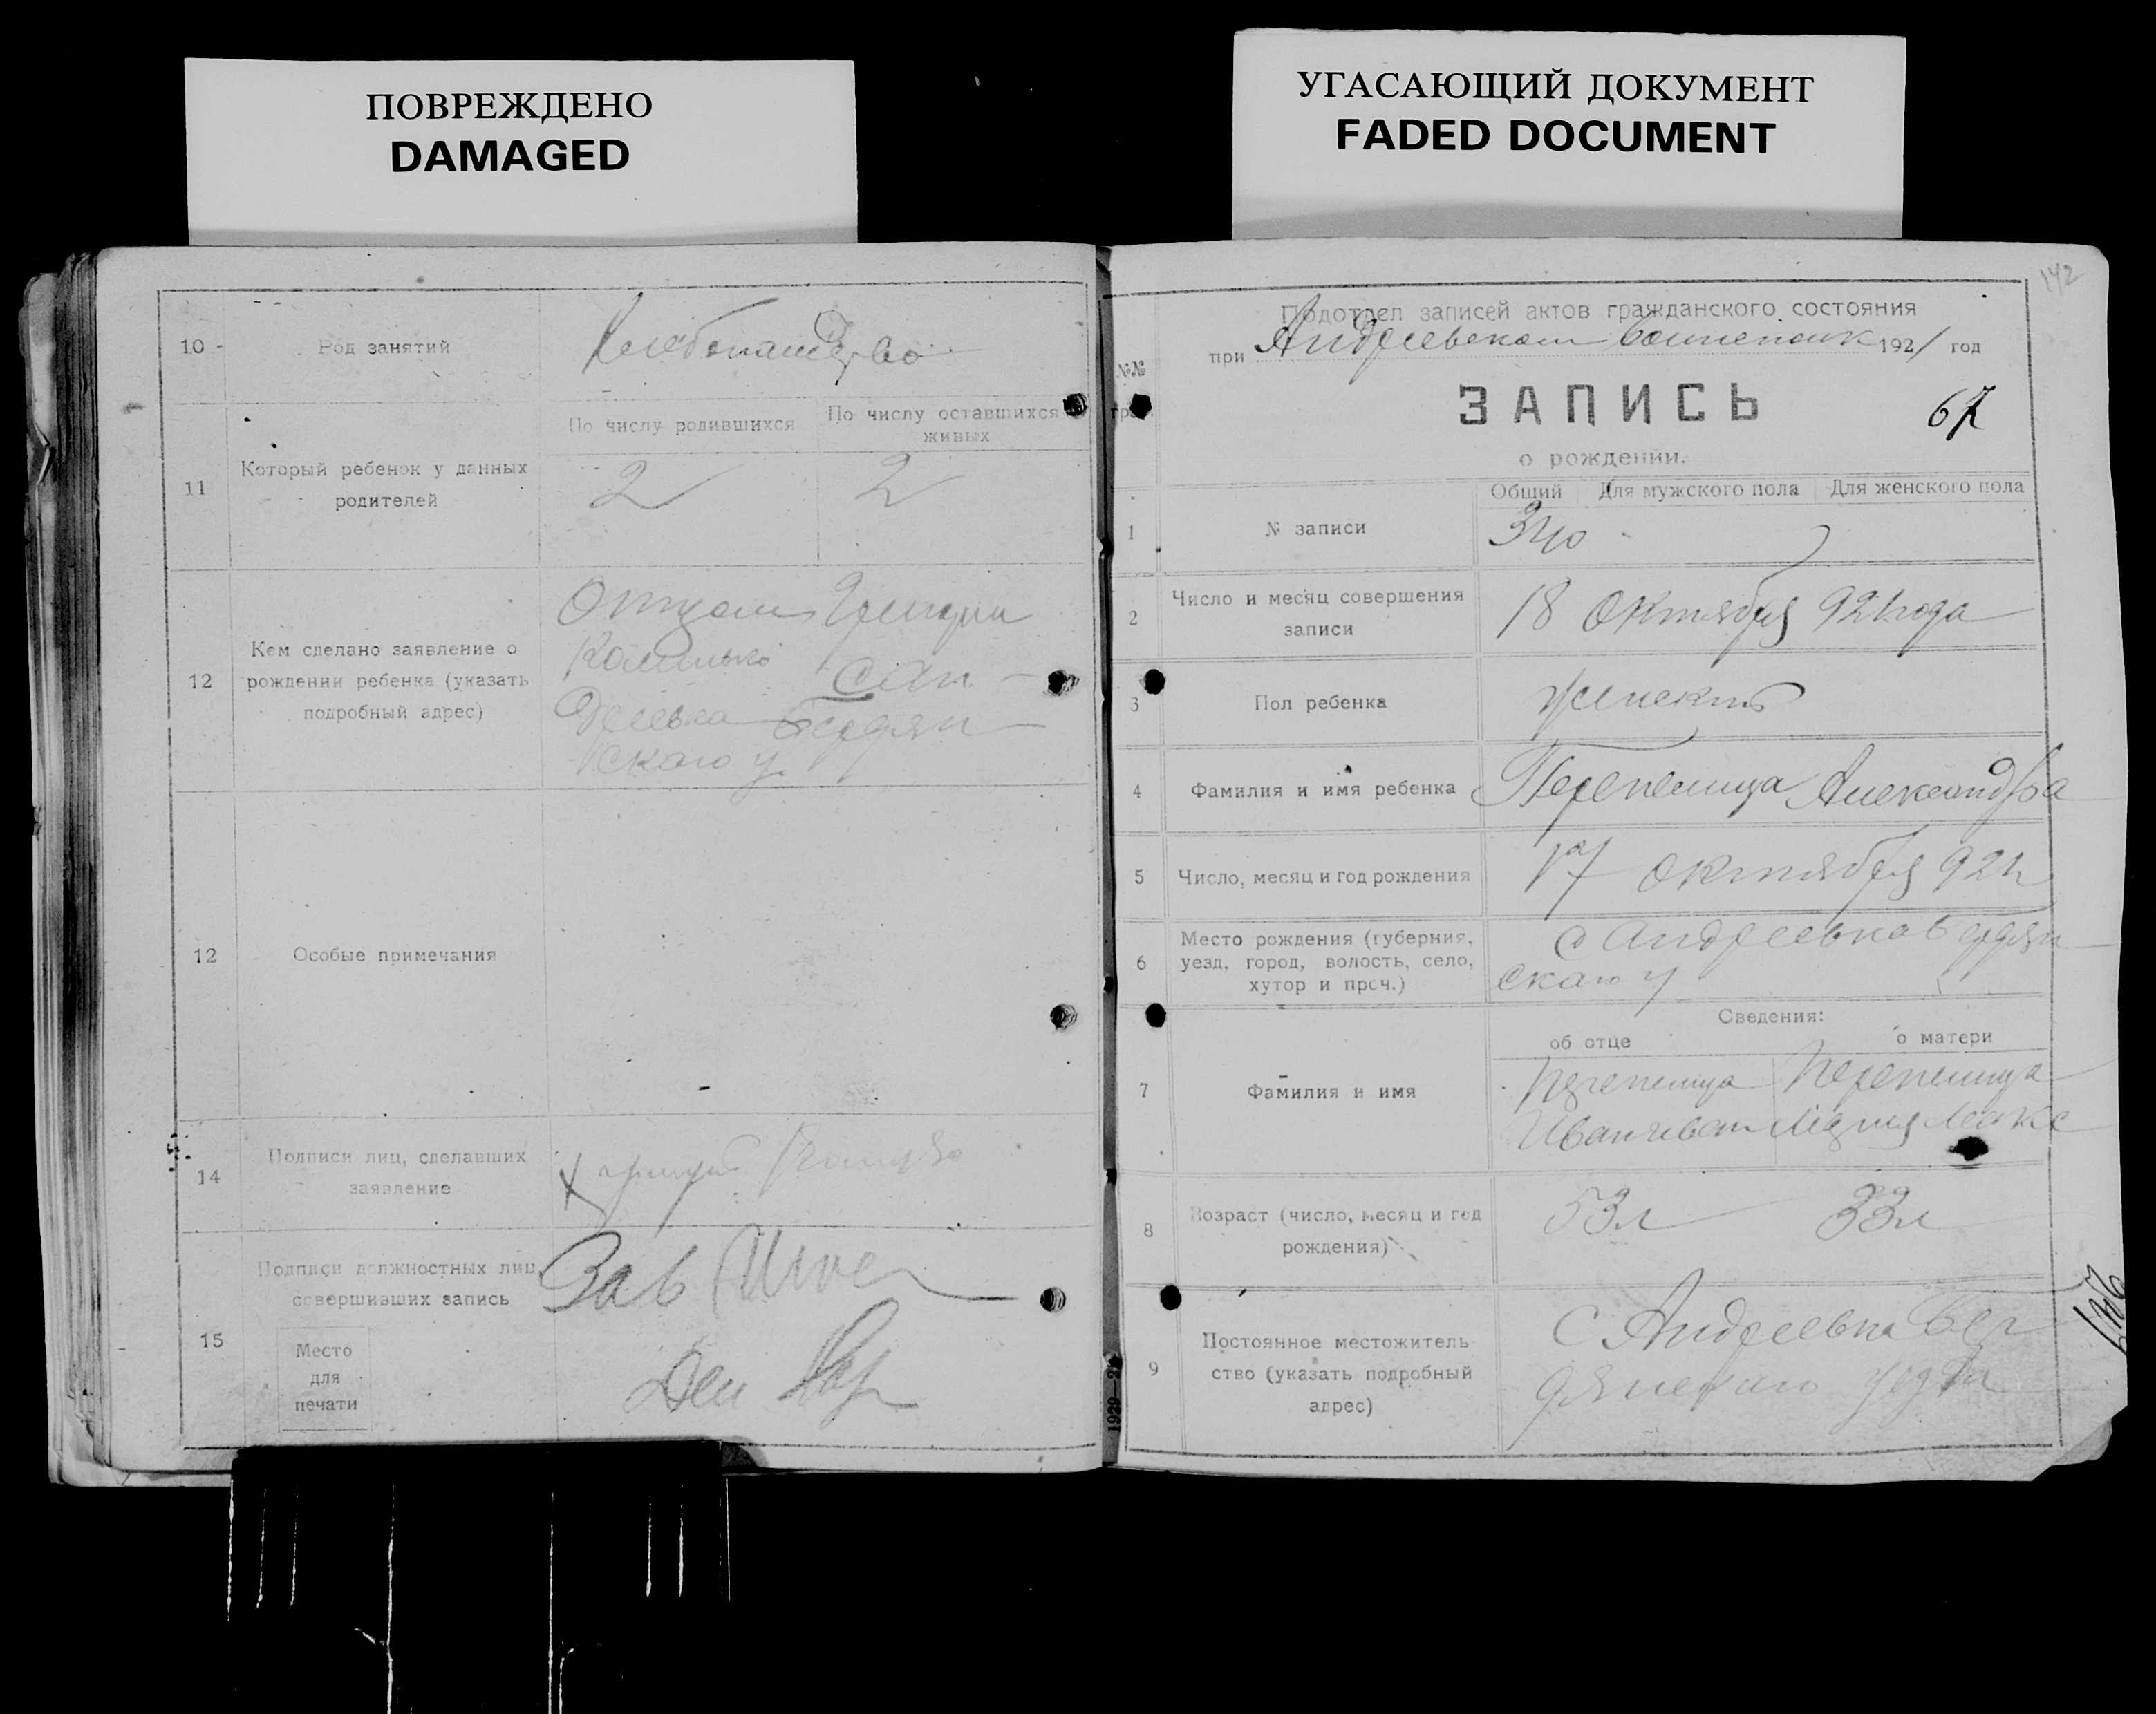 ПОВРЕЖДЕНО
DAMAGED
УГАСАЮЩИЙ ДОКУМЕНТ
FADED DOCUMENT
10 Род занятий Хлебопашество
11 Который ребенок у данных родителей
По числу родившихся По числу оставшихся живых
2 2
12 Кем сделано заявление о
рождении ребенка (указать
подробный адрес)
Отцом
с Ан-
дреевка Бердян-
скаго у.
12 Особые примечания
14 Подписи лиц, сделавших
заявление
15 Подписи должностных лиц,
совершивших запись
Зав
Место
для
печати
Дел
142
Подотдел записей актов гражданского состояния
при Андреевском 1921 год
№№
граф.
ЗАПИСЬ
67
о рождении.
Общий Для мужского пола Для женского пола
1 № записи 340
2 Число и месяц совершения
записи
18 Октября 921 года
3 Пол ребенка женский
4 Фамилия и имя ребенка Перепелица Александра
5 Число, месяц и год рождения 17 Октября 921
6 Место рождения (губерния,
уезд, город, волость, село,
хутор и проч.)
с Андреевка Бердян
скаго у
Сведения:
об отце о матери
7 Фамилия и имя
Перепелица Перепелица
Иван Иван Мария Макс
8 Возраст (число, месяц и год
рождения)
53 л 33 л
9 Постоянное местожитель
ство (указать подробный
адрес)
С Андреевка Бер
дянскаго уезда
1929—2